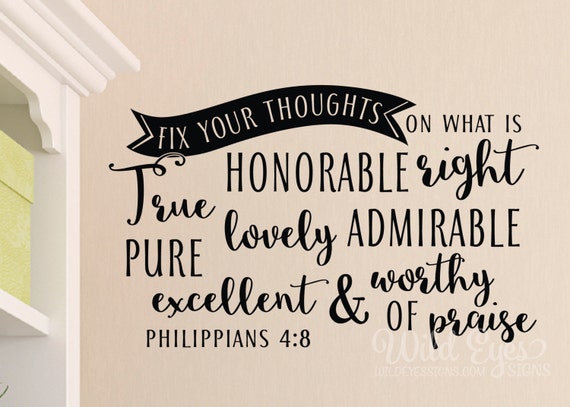 FIX YOUR THOUGHTS ON WHAT IS
True HONORABLE right
PURE lovely ADMIRABLE
excellent & worthy
OF praise
PHILIPPIANS 4:8
Wild Eyes
SIGNS
WILDEYESSIGNS.COM